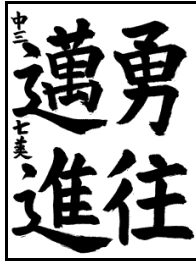 勇往
邁進
中三 七英